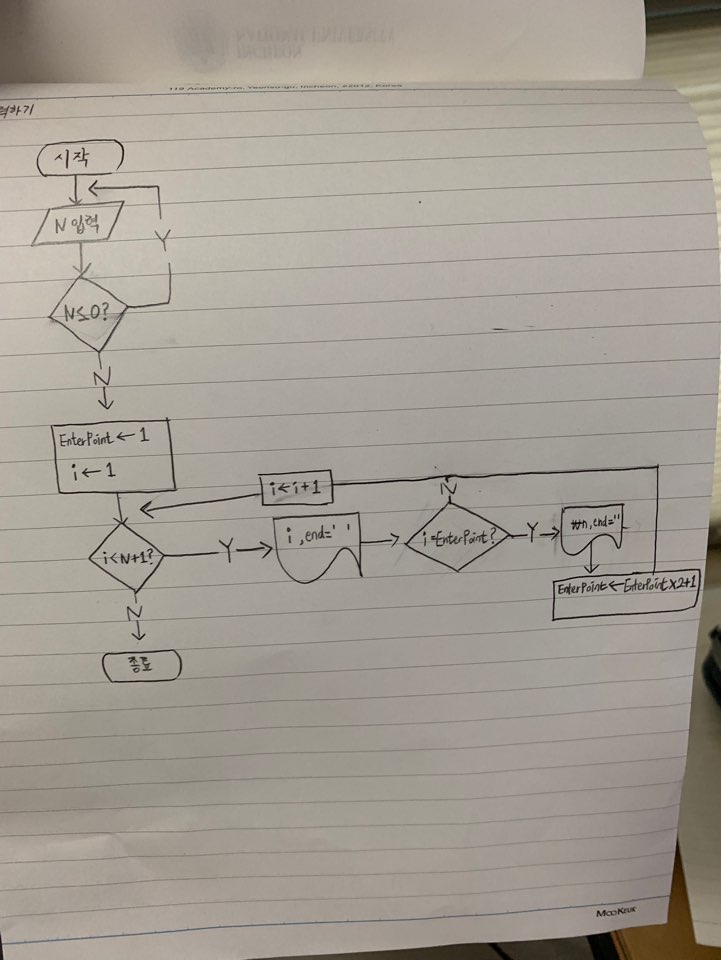 119 Academy-ro, Yeonsu-gu, Incheon, 22012, Korea
력하기
시작
N 입력
Y
N≤0?
N
EnterPoint ← 1
i ← 1
i ← i+1
N
i<N+1?
Y
i ,end=' '
i=EnterPoint?
Y
₩n,end=''
EnterPoint ← EnterPoint×2+1
N
종료
MOOKEUK